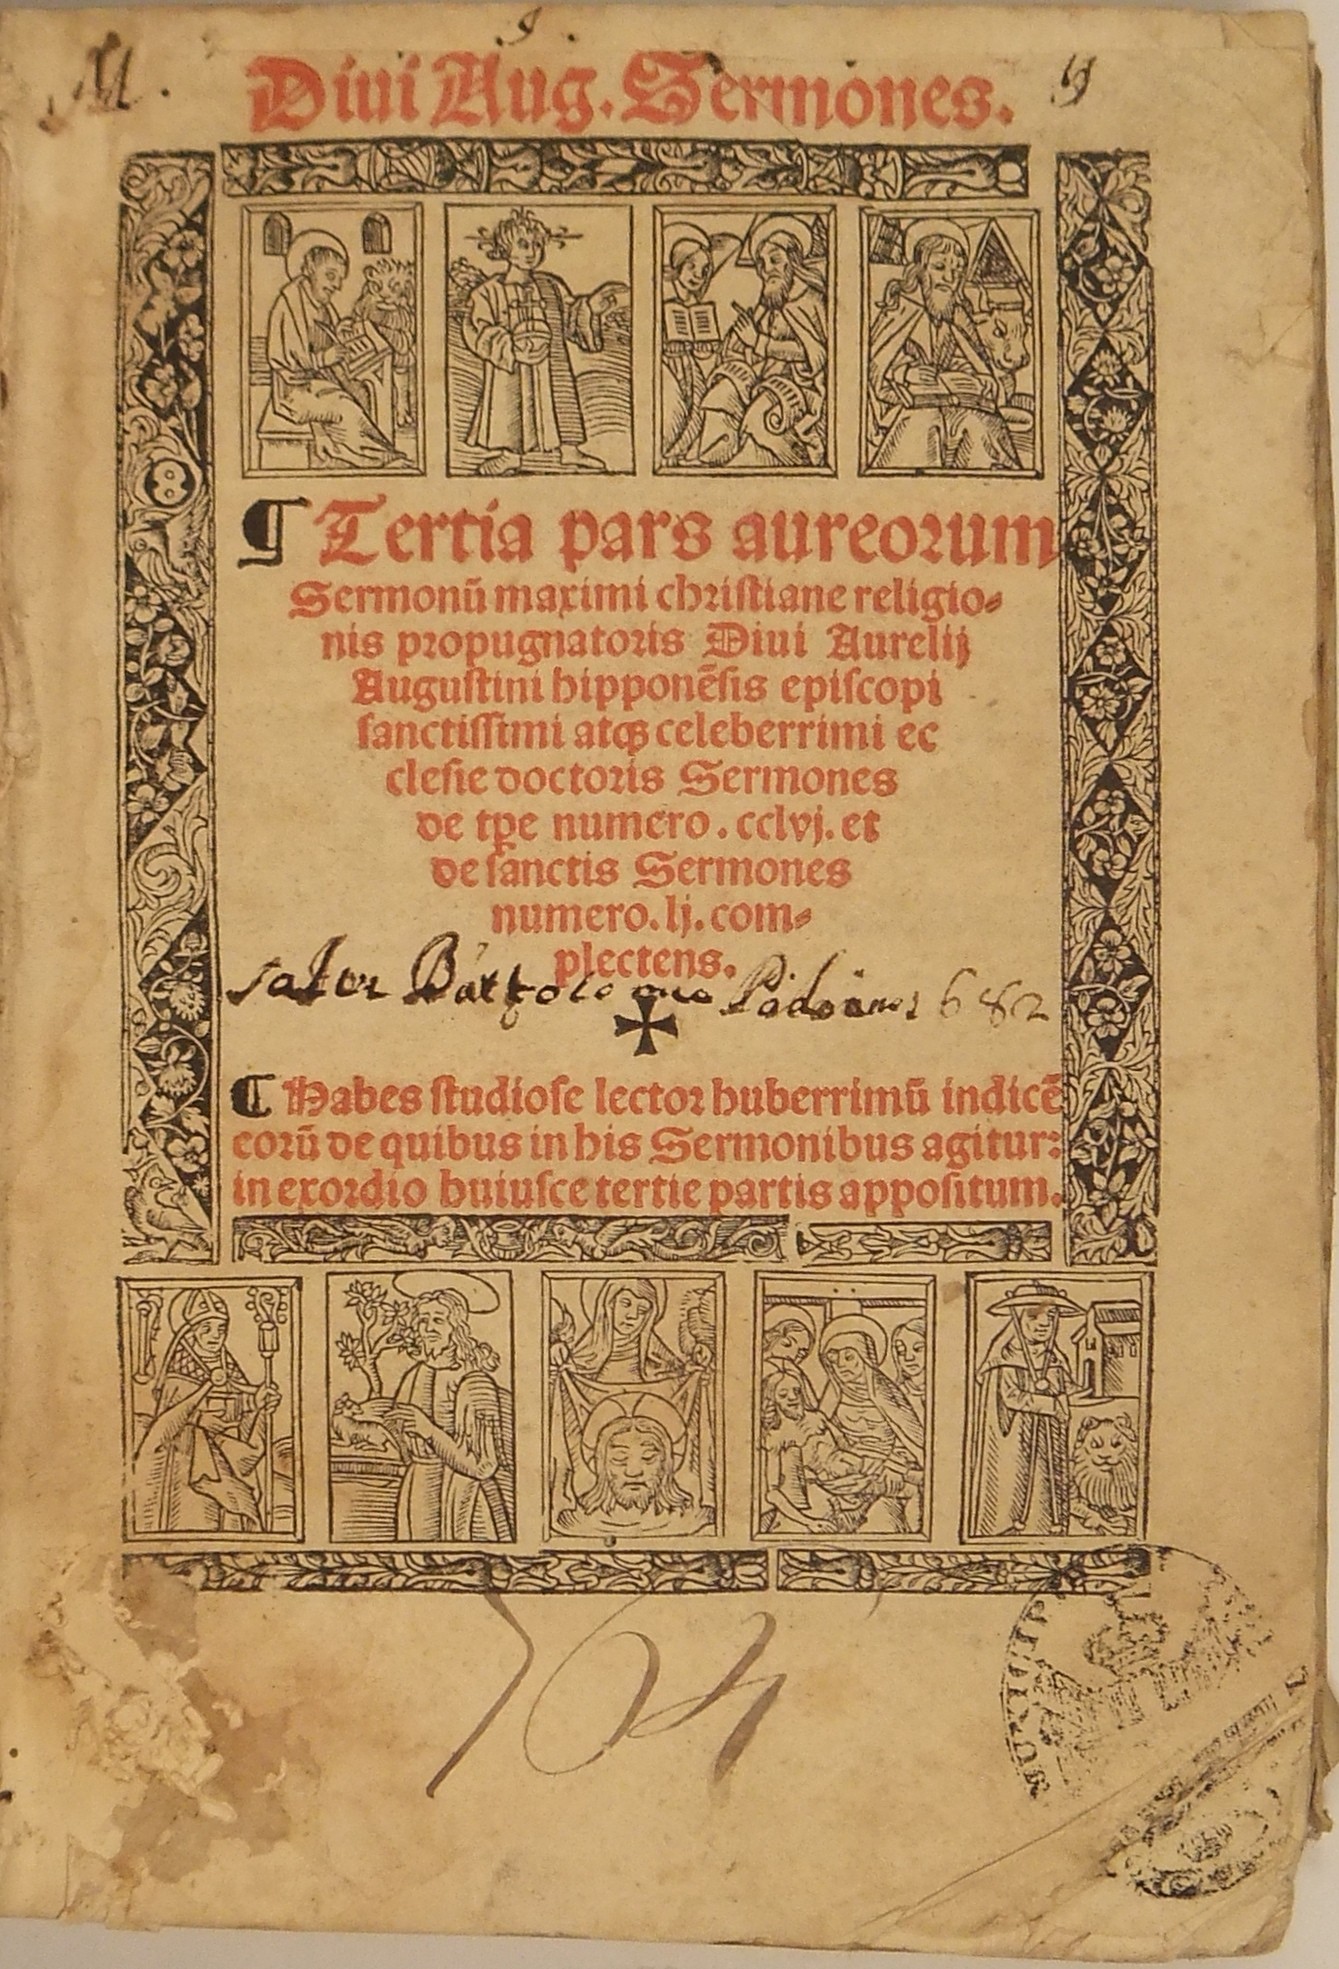 Diui Aug. Sermones.
¶ Tertia pars aureorum
Sermonū maximi christiane religio⸗
nis propugnatoris Diui Aurelij
Augustini hipponēsis episcopi
sanctissimi atqꝫ celeberrimi ec
clesie doctoris Sermones
de tꝑe numero. cclvj. et
de sanctis Sermones
numero. lj. com⸗
plectens.
682
¶ Habes studiose lector huberrimū indicē
eorū de quibus in his Sermonibus agitur:
in exordio huiusce tertie partis appositum.